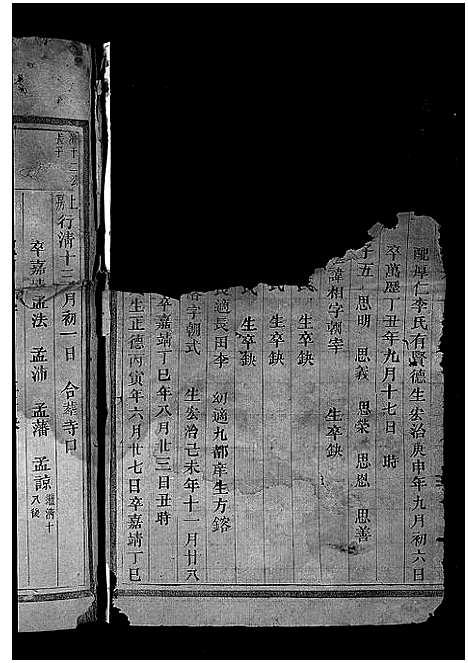 配厚仁李氏有賢德生宏治庚申年九月初六日
卒萬歷丁丑年九月十七日 時
子五 思明 思義 思榮 思恩 思善
諱相字朝宰 生卒缺
氏 生卒缺
氏 生卒缺
長適長田李 幼適九都庠生方鎔
字朝式 生宏治己未年十一月廿八
卒嘉靖丁巳年八月廿三日丑時
生正德丙寅年六月廿七日卒嘉靖丁巳
長子
行清十二 月初一日 合葬寺口
卒嘉靖 孟法 孟沛 孟藩 孟諒 繼清十八後